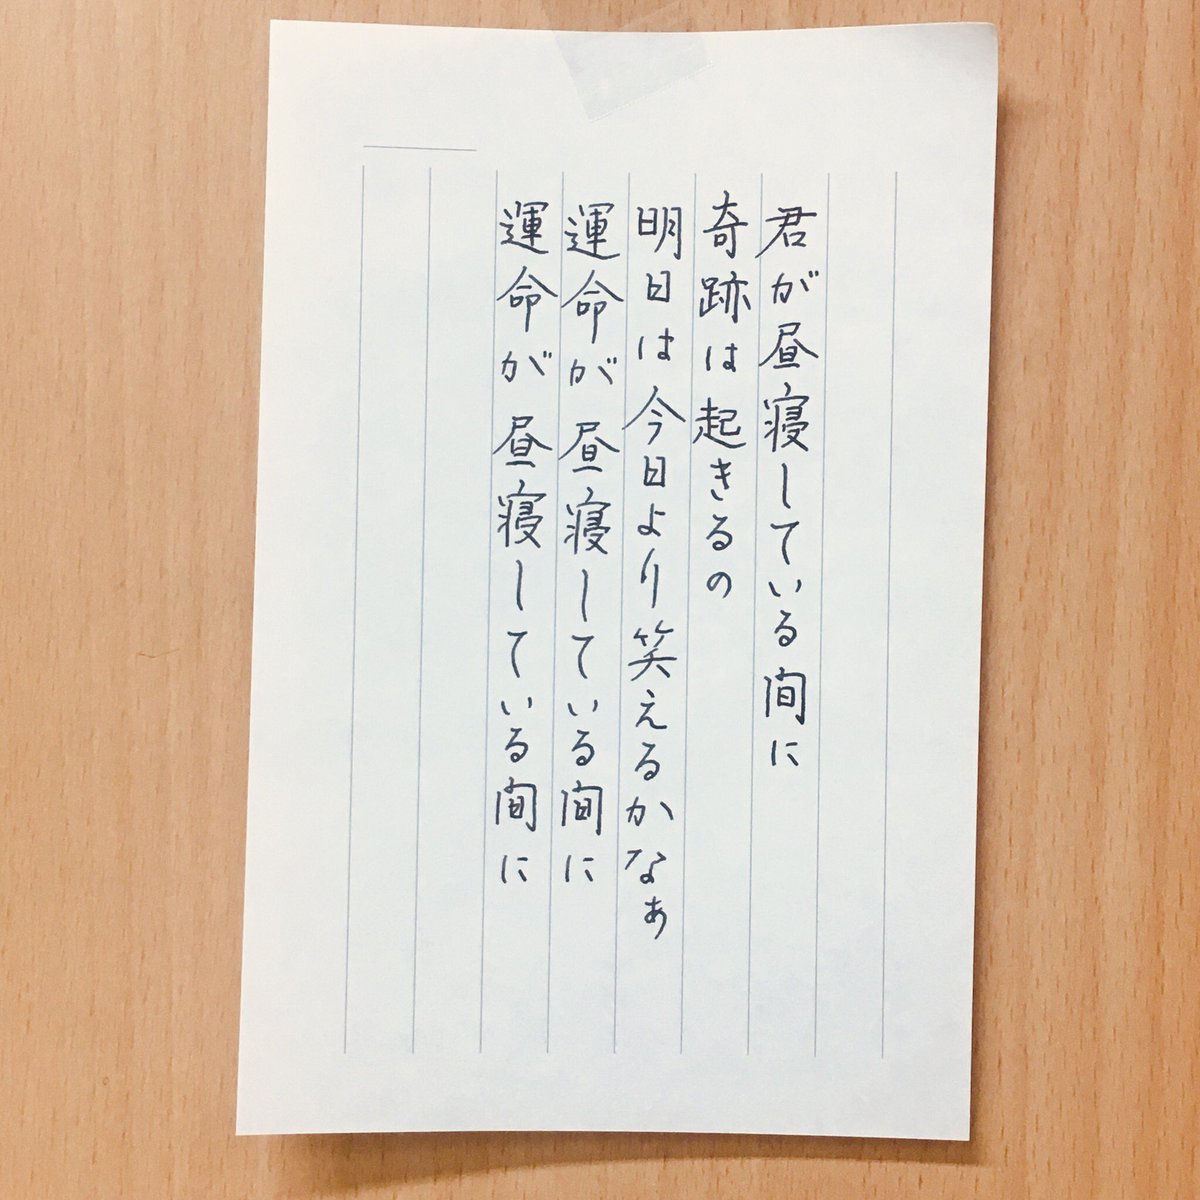 君が昼寝している間に
奇跡は起きるの
明日は今日より笑えるかなぁ
運命が昼寝している間に
運命が昼寝している間に